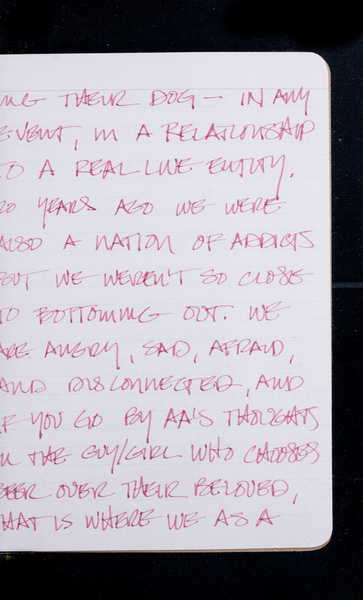 ING THEIR DOG — IN ANY
EVENT, IN A RELATIONSHIP
TO A REAL LIVE ENTITY.
20 YEARS AGO WE WERE
ALSO A NATION OF ADDICTS
BUT WE WEREN'T SO CLOSE
TO BOTTOMING OUT. WE
ARE ANGRY, SAD, AFRAID,
AND DISCONNECTED, AND
IF YOU GO BY AA'S THOUGHTS
IN THE GUY/GIRL WHO CHOOSES
BEER OVER THEIR BELOVED,
THAT IS WHERE WE AS A